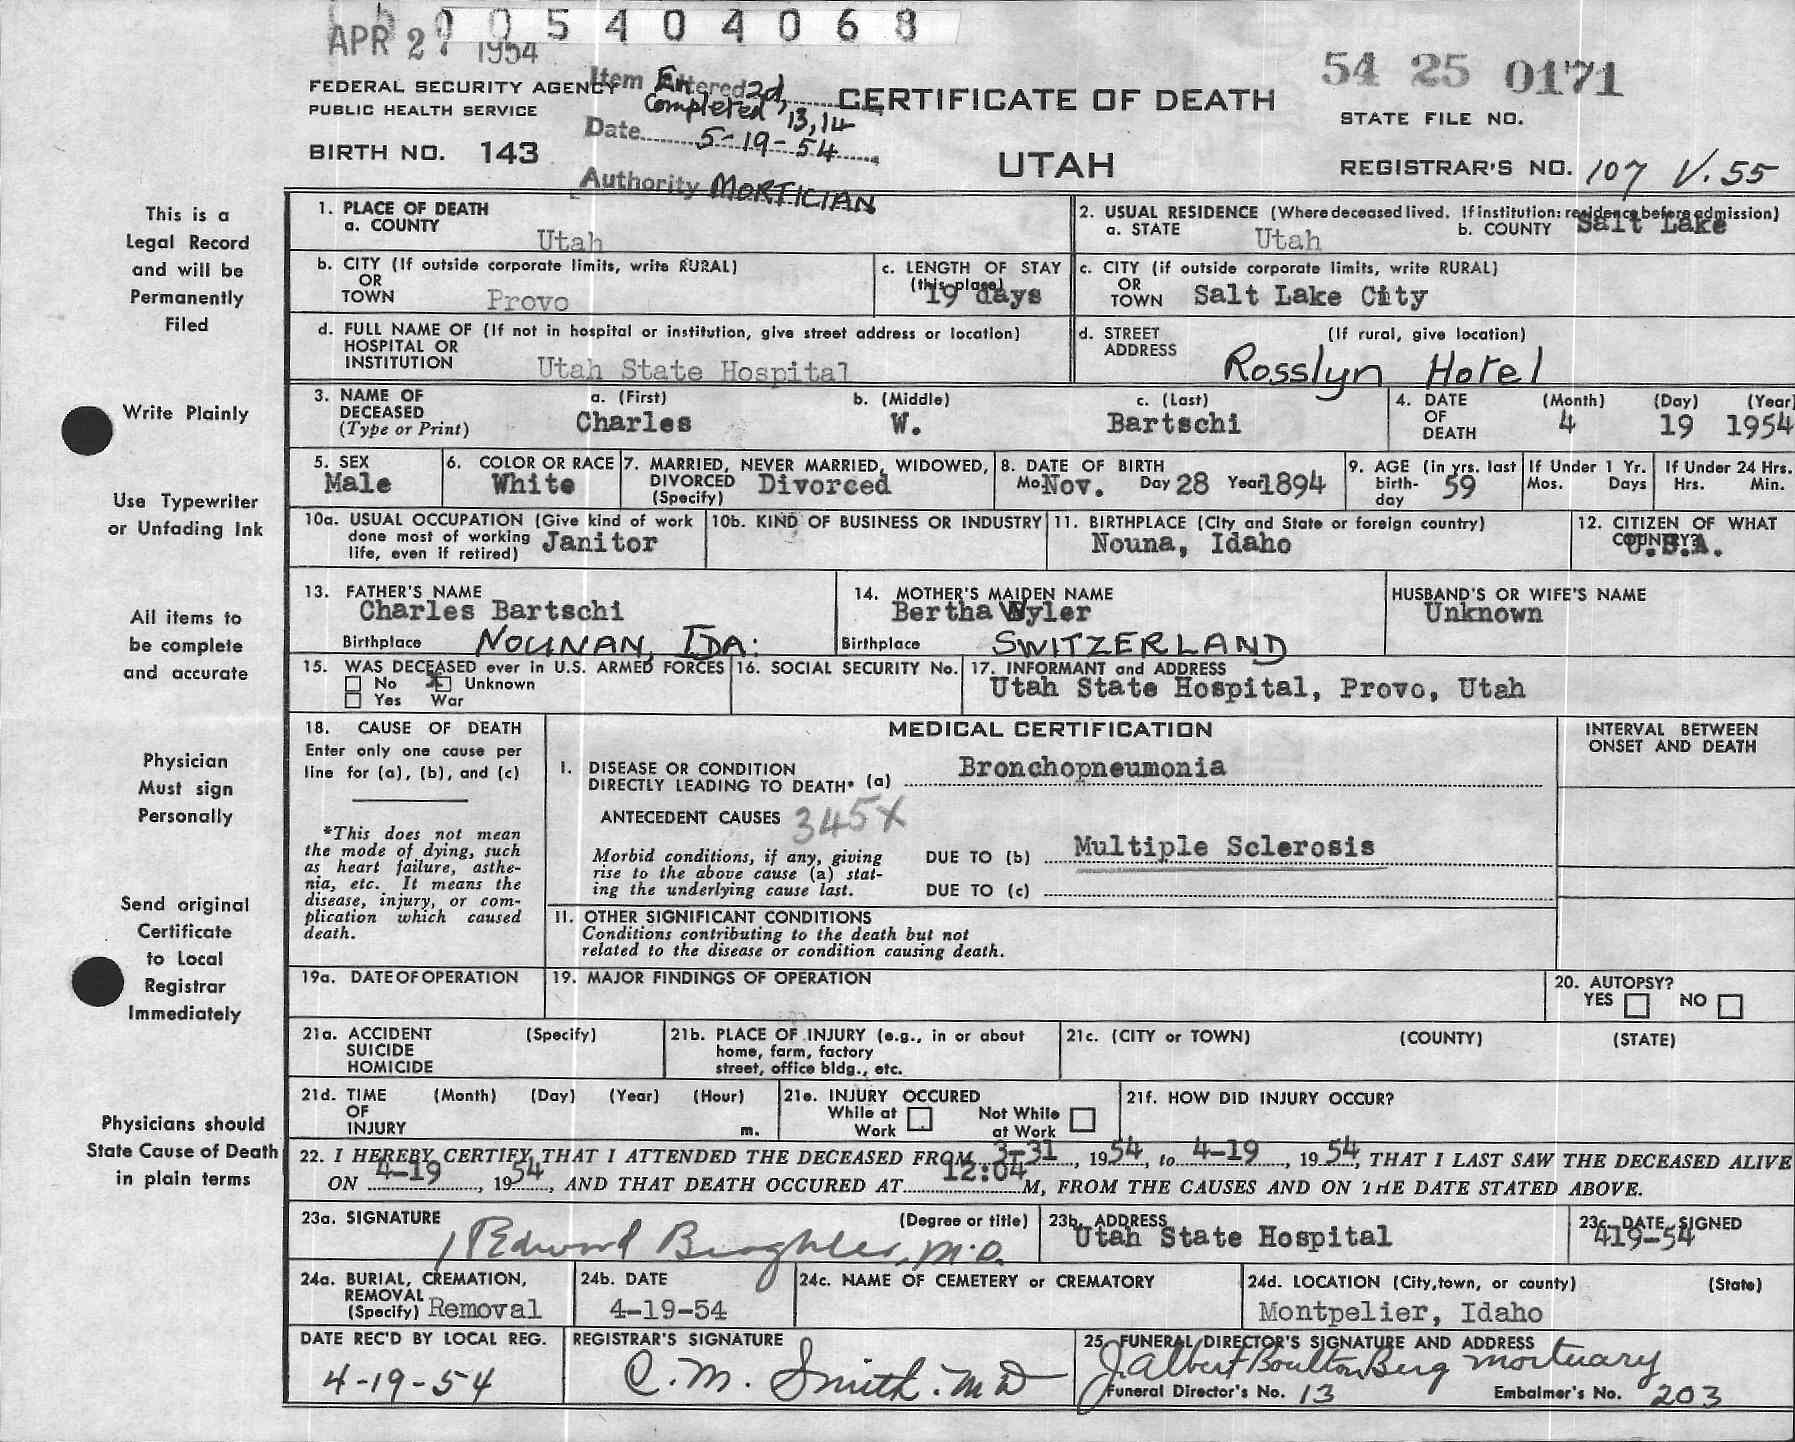 0005404068
APR 27 1954
54 25 0171
FEDERAL SECURITY AGENCY
PUBLIC HEALTH SERVICE
Item Entered 2d,
Completed 13,14
Date 5-19-54
Authority MORTICIAN
CERTIFICATE OF DEATH
STATE FILE NO.
BIRTH NO. 143
UTAH
REGISTRAR'S NO. 107 V.55
This is a
Legal Record
and will be
Permanently
Filed
Write Plainly
Use Typewriter
or Unfading Ink
All items to
be complete
and accurate
Physician
Must sign
Personally
Send original
Certificate
to Local
Registrar
Immediately
Physicians should
State Cause of Death
in plain terms
1. PLACE OF DEATH
a. COUNTY Utah
2. USUAL RESIDENCE (Where deceased lived. If institution: residence before admission)
a. STATE Utah b. COUNTY Salt Lake
b. CITY (If outside corporate limits, write RURAL)
OR
TOWN Provo
c. LENGTH OF STAY
(this place)
19 days
c. CITY (if outside corporate limits, write RURAL)
OR
TOWN Salt Lake City
d. FULL NAME OF (If not in hospital or institution, give street address or location)
HOSPITAL OR
INSTITUTION Utah State Hospital
d. STREET (If rural, give location)
ADDRESS Rosslyn Hotel
3. NAME OF a. (First) b. (Middle) c. (Last)
DECEASED
(Type or Print) Charles W. Bartschi
4. DATE (Month) (Day) (Year)
OF
DEATH 4 19 1954
5. SEX
Male
6. COLOR OR RACE
White
7. MARRIED, NEVER MARRIED, WIDOWED,
DIVORCED Divorced
(Specify)
8. DATE OF BIRTH
Mo Nov. Day 28 Year 1894
9. AGE (in yrs. last
birth-
day 59
If Under 1 Yr.
Mos. Days
If Under 24 Hrs.
Hrs. Min.
10a. USUAL OCCUPATION (Give kind of work
done most of working
life, even if retired) Janitor
10b. KIND OF BUSINESS OR INDUSTRY
11. BIRTHPLACE (City and State or foreign country)
Nouna, Idaho
12. CITIZEN OF WHAT
COUNTRY?
U.S.A.
13. FATHER'S NAME
Charles Bartschi
Birthplace NOUNAN, IDA:
14. MOTHER'S MAIDEN NAME
Bertha Wyler
Birthplace SWITZERLAND
HUSBAND'S OR WIFE'S NAME
Unknown
15. WAS DECEASED ever in U.S. ARMED FORCES
No X Unknown
Yes War
16. SOCIAL SECURITY No.
17. INFORMANT and ADDRESS
Utah State Hospital, Provo, Utah
18. CAUSE OF DEATH
Enter only one cause per
line for (a), (b), and (c)
*This does not mean
the mode of dying, such
as heart failure, asthe-
nia, etc. It means the
disease, injury, or com-
plication which caused
death.
MEDICAL CERTIFICATION
INTERVAL BETWEEN
ONSET AND DEATH
I. DISEASE OR CONDITION
DIRECTLY LEADING TO DEATH* (a) Bronchopneumonia
ANTECEDENT CAUSES 345X
Morbid conditions, if any, giving
rise to the above cause (a) stat-
ing the underlying cause last.
DUE TO (b) Multiple Sclerosis
DUE TO (c)
II. OTHER SIGNIFICANT CONDITIONS
Conditions contributing to the death but not
related to the disease or condition causing death.
19a. DATE OF OPERATION
19. MAJOR FINDINGS OF OPERATION
20. AUTOPSY?
YES NO
21a. ACCIDENT (Specify)
SUICIDE
HOMICIDE
21b. PLACE OF INJURY (e.g., in or about
home, farm, factory
street, office bldg., etc.
21c. (CITY or TOWN) (COUNTY) (STATE)
21d. TIME (Month) (Day) (Year) (Hour)
OF
INJURY m.
21e. INJURY OCCURED
While at Not While
Work at Work
21f. HOW DID INJURY OCCUR?
22. I HEREBY CERTIFY THAT I ATTENDED THE DECEASED FROM 3-31, 1954, to 4-19, 1954, THAT I LAST SAW THE DECEASED ALIVE
ON 4-19, 1954, AND THAT DEATH OCCURED AT 12:04 M, FROM THE CAUSES AND ON THE DATE STATED ABOVE.
23a. SIGNATURE (Degree or title)
Edward M.D.
23b. ADDRESS
Utah State Hospital
23c. DATE SIGNED
419-54
24a. BURIAL, CREMATION,
REMOVAL
(Specify) Removal
24b. DATE
4-19-54
24c. NAME OF CEMETERY or CREMATORY
24d. LOCATION (City, town, or county) (State)
Montpelier, Idaho
DATE REC'D BY LOCAL REG.
4-19-54
REGISTRAR'S SIGNATURE
C. M. Smith. M D
25. FUNERAL DIRECTOR'S SIGNATURE AND ADDRESS
J. Albert Boulton Berg Mortuary
Funeral Director's No. 13 Embalmer's No. 203